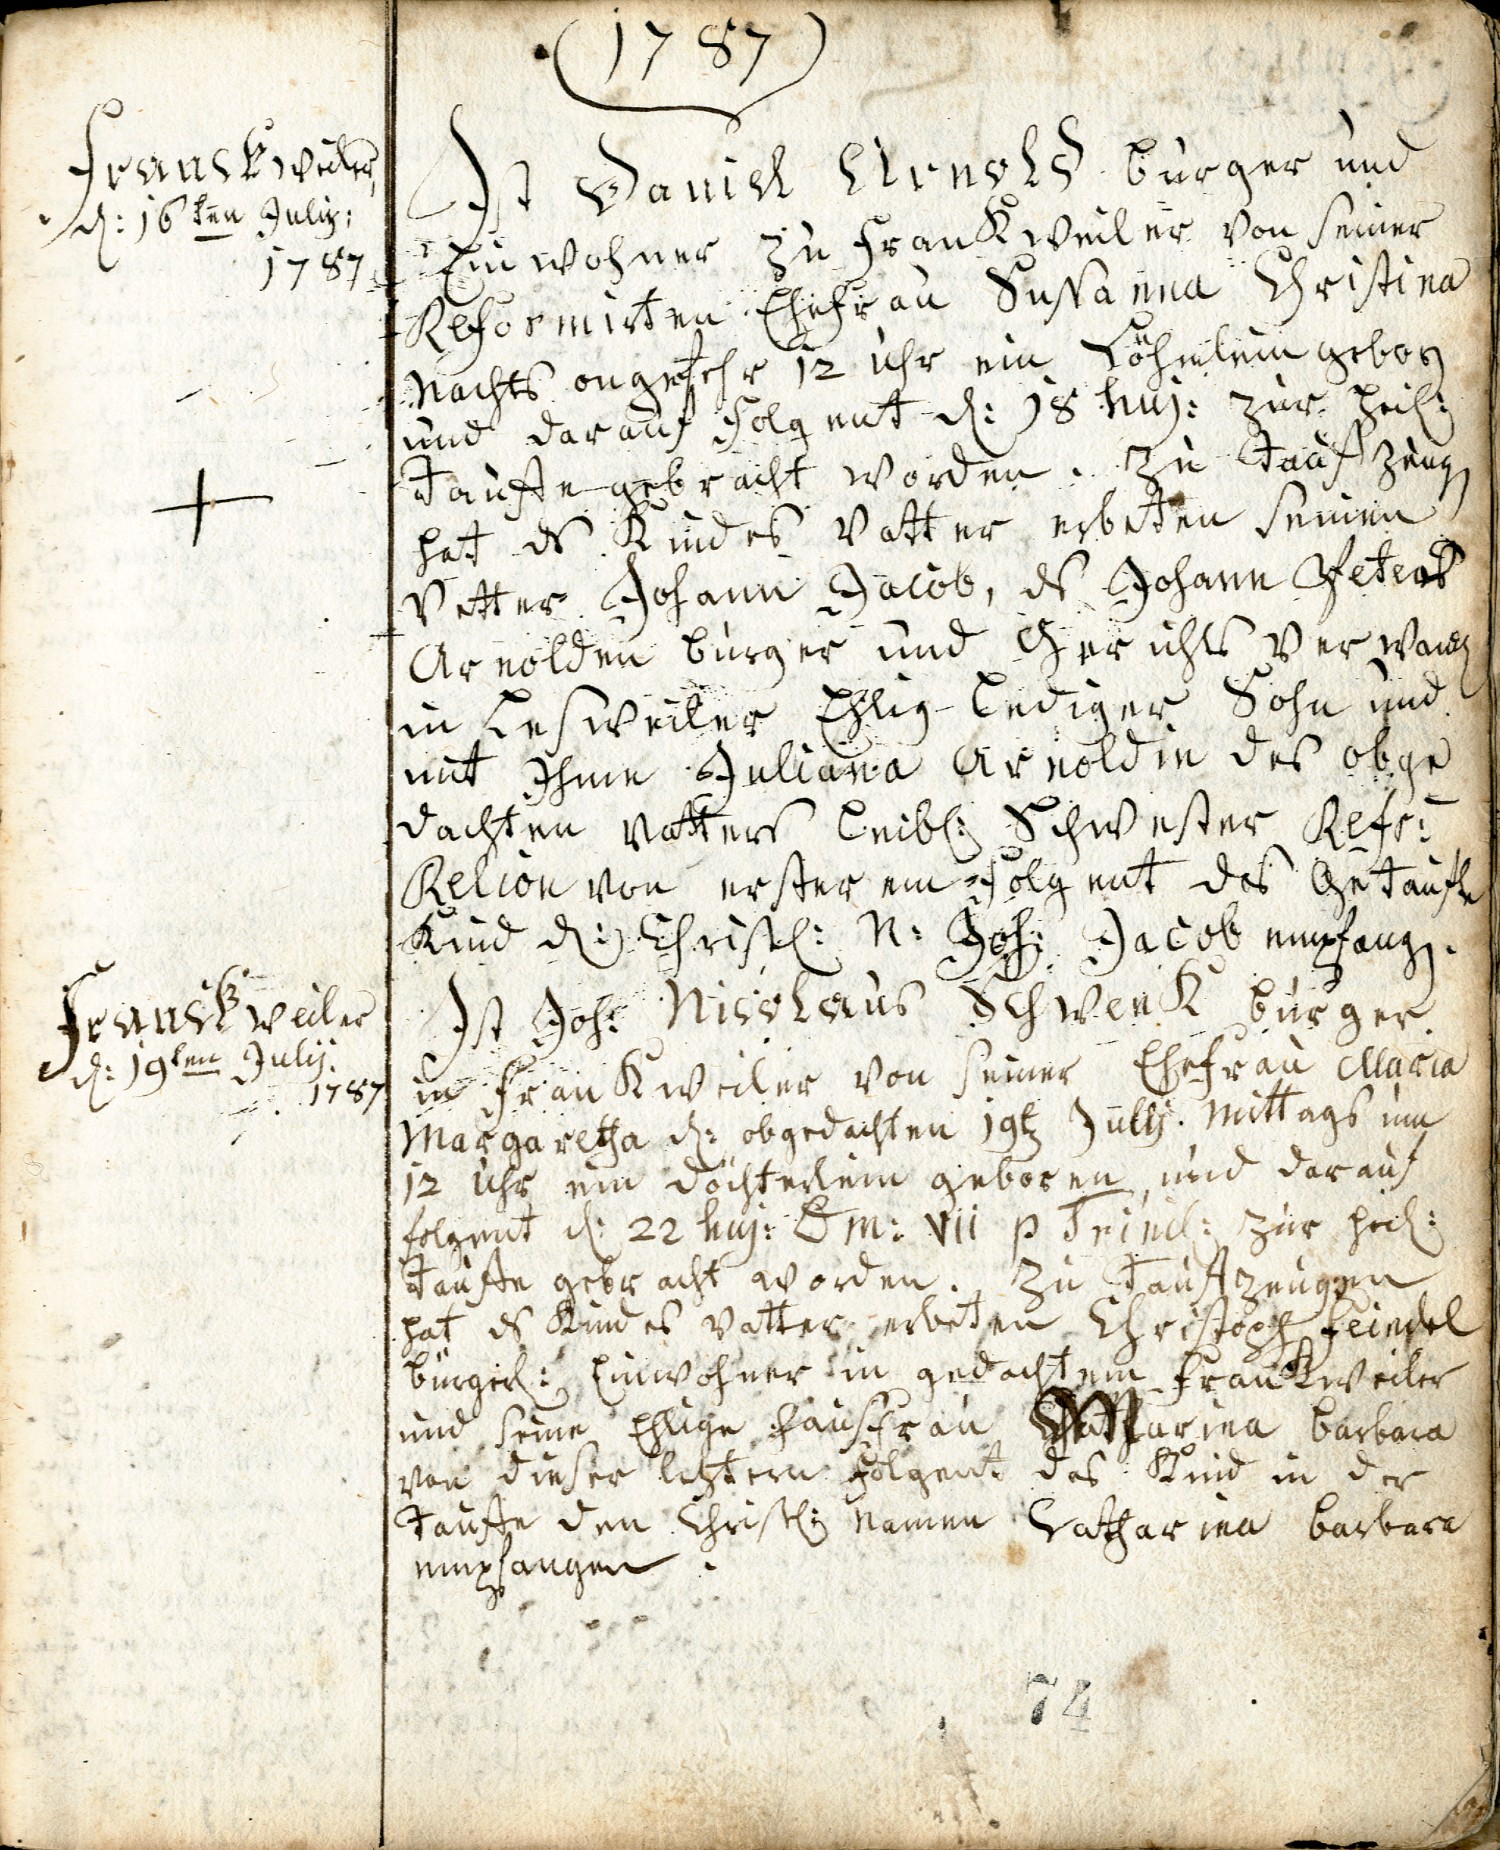 (1787)
Franckweiler,
d: 16ten Julij:
1787
Ist Daniel Arnold burger und
Einwohner zu Frankweiler von seiner
Reformirten Ehefrau Susanna Christina
Nachts ongefehr 12 Uhr ein Söhnlein geborn
und darauf Folgent d: 18 huj: zur heil:
Tauffe gebracht worden. Zu Tauffzeugen
hat ds Kindes Vatter erbeten seinen
Vetter Johann Jacob, ds Johann Peters
Arnolden burger und Gerichts Verwanden
in Lesweiler Ehlig Lediger Sohn und
mit Ihme Juliana Arnoldin des obge
dachten Vatters Leibl: Schwester Refr:
Relion von ersterem Folgent das Getaufte
Kind d: Christl: N: Joh: Jacob empfangen.
Franckweiler
d: 19ten Julij.
1787
Ist Joh: Nicolaus Schwenk burger
in Frankweiler von seiner Ehefrau Maria
Margaretha d: obgedachten 19t Julij. Mittags um
12 Uhr ein Döchterlein geboren und darauf
folgent d: 22 huj: Dm: VII p Trind: zur heil:
Tauffe gebracht worden. Zu Tauffzeugen
hat ds Kindes Vatter erbeten Christoph Feindel
bürgerl: Einwohner in gedachtem Frankweiler
und seine Ehlige Hausfrau Catharina barbara
von dieser letztern Folgent das Kind in der
Tauffe den Christl: Namen Catharina barbara
empfangen.
74